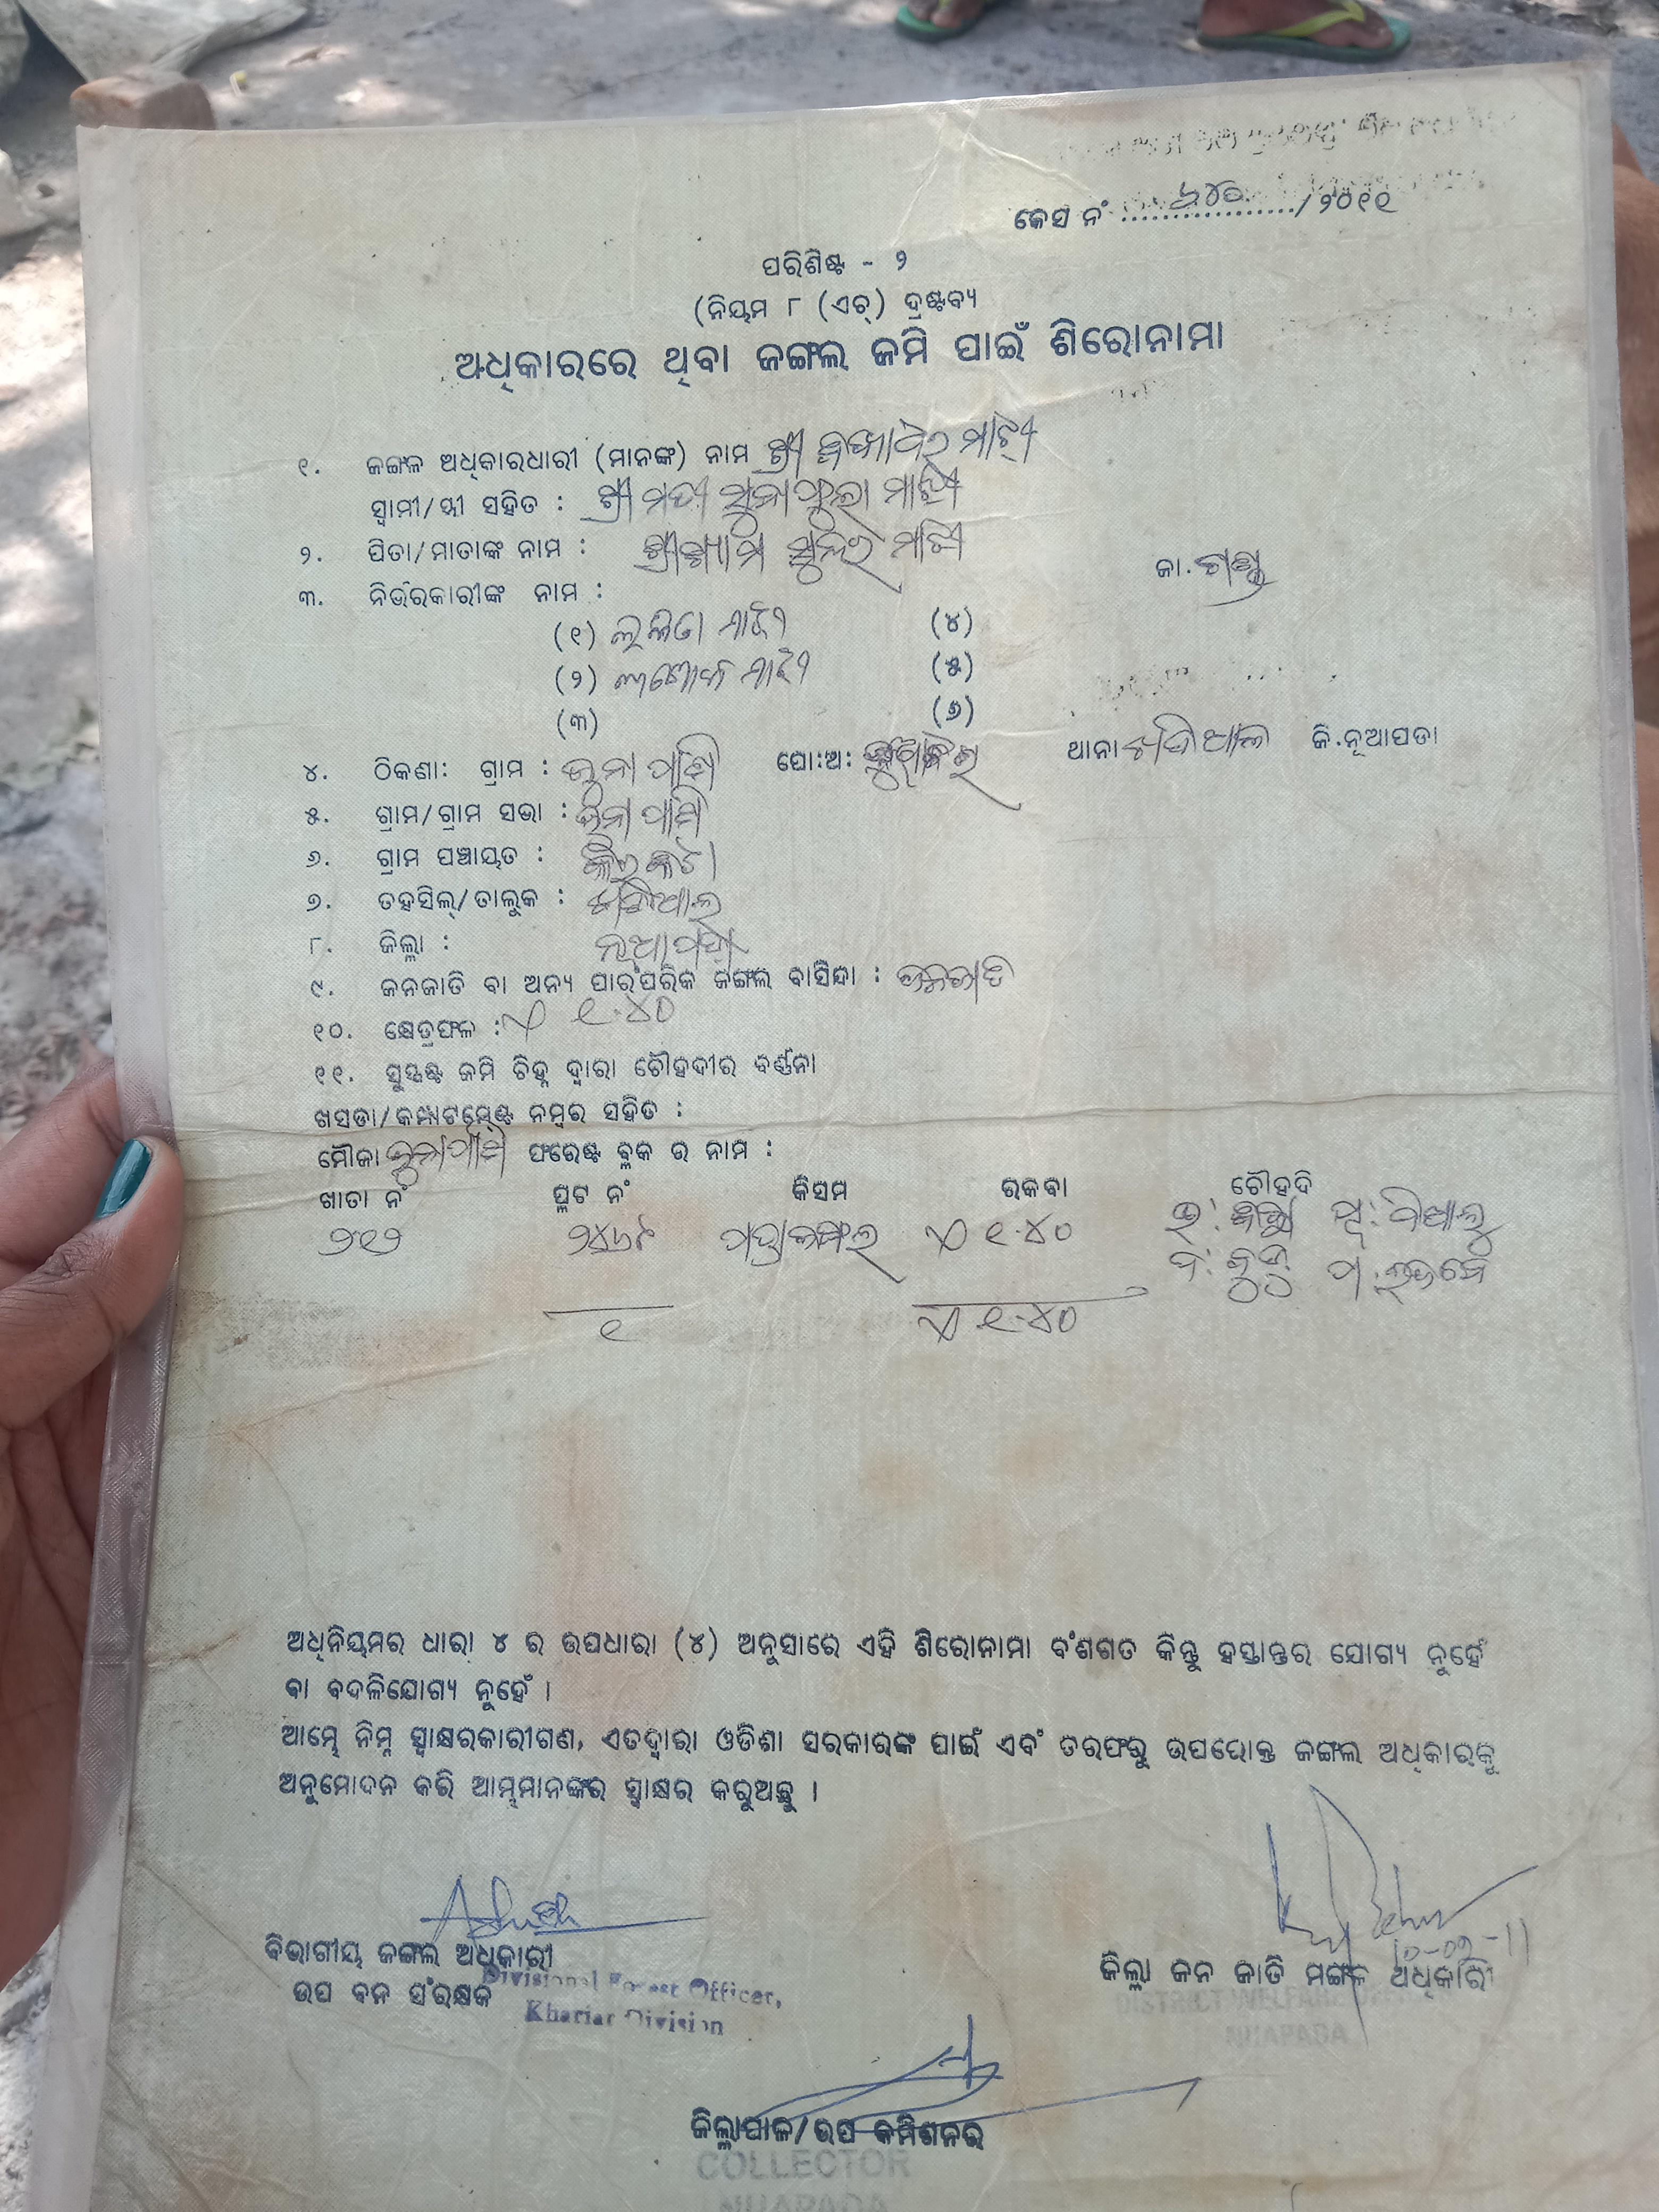 କେସ ନଂ ୬୪୦ /୨୦୧୧
ପରିଶିଷ୍ଟ - ୨
(ନିୟମ ୮ (ଏଚ୍) ଦ୍ରଷ୍ଟବ୍ୟ
ଅଧିକାରରେ ଥିବା ଜଙ୍ଗଲ ଜମି ପାଇଁ ଶିରୋନାମା
୧. ଜଙ୍ଗଳ ଅଧିକାରଧାରୀ (ମାନଙ୍କ) ନାମ ଶ୍ରୀ ମାଝୀ
ସ୍ୱାମୀ/ସ୍ତ୍ରୀ ସହିତ : ଶ୍ରୀମତୀ ମାଝୀ
୨. ପିତା/ମାତାଙ୍କ ନାମ : ଶ୍ରୀ ଶ୍ୟାମ ସୁନ୍ଦର ମାଝୀ ଜା.
୩. ନିର୍ଭରକାରୀଙ୍କ ନାମ :
(୧) ଲଳିତା ମାଝୀ (୪)
(୨) ମାଝୀ (୫)
(୩) (୬)
୪. ଠିକଣା: ଗ୍ରାମ : ଜୁନାପାନି ପୋ:ଅ: ଥାନା ଖଡିଆଳ ଜି.ନୂଆପଡା
୫. ଗ୍ରାମ/ଗ୍ରାମ ସଭା : ଜୁନାପାନି
୬. ଗ୍ରାମ ପଞ୍ଚାୟତ :
୭. ତହସିଲ୍/ତାଲୁକ : ଖଡିଆଲ
୮. ଜିଲ୍ଲା : ନୂଆପଡା
୯. ଜନଜାତି ବା ଅନ୍ୟ ପାରଂପରିକ ଜଙ୍ଗଲ ବାସିନ୍ଦା : ଜନଜାତି
୧୦. କ୍ଷେତ୍ରଫଳ : ୧.୪୦
୧୧. ସୁସ୍ପଷ୍ଟ ଜମି ଚିହ୍ନ ଦ୍ୱାରା ଚୌହଦୀର ବର୍ଣ୍ଣନା
ଖସଡା/କମ୍ପାଟମେଣ୍ଟ ନମ୍ବର ସହିତ :
ମୌଜା ଜୁନାପାନି ଫରେଷ୍ଟ ବ୍ଳକ ର ନାମ :
ଖାତା ନଂ ପ୍ଳଟ ନଂ କିସମ ରକବା ଚୌହଦି
୨୧୨ ୨୪୬୯ ୧.୪୦ ଉ: ପୂ:
ଦ: ପ:
୧ ୧.୪୦
ଅଧିନିୟମର ଧାରା ୪ ର ଉପଧାରା (୪) ଅନୁସାରେ ଏହି ଶିରୋନାମା ବଂଶଗତ କିନ୍ତୁ ହସ୍ତାନ୍ତର ଯୋଗ୍ୟ ନୁହେଁ
ବା ବଦଳିଯୋଗ୍ୟ ନୁହେଁ ।
ଆମ୍ଭେ ନିମ୍ନ ସ୍ୱାକ୍ଷରକାରୀଗଣ, ଏତଦ୍ୱାରା ଓଡିଶା ସରକାରଙ୍କ ପାଇଁ ଏବଂ ତରଫରୁ ଉପରୋକ୍ତ ଜଙ୍ଗଲ ଅଧିକାରକୁ
ଅନୁମୋଦନ କରି ଆମ୍ଭମାନଙ୍କର ସ୍ୱାକ୍ଷର କରୁଅଛୁ ।
ବିଭାଗୀୟ ଜଙ୍ଗଲ ଅଧିକାରୀ
ଉପ ବନ ସଂରକ୍ଷକ
Divisional Forest Officer,
Khariar Division
ଜିଲ୍ଲା ଜନ ଜାତି ମଙ୍ଗଳ ଅଧିକାରୀ
DISTRICT WELFARE
NUAPADA
ଜିଲ୍ଲାପାଳ/ଉପ କମିଶନର
COLLECTOR
NUAPADA